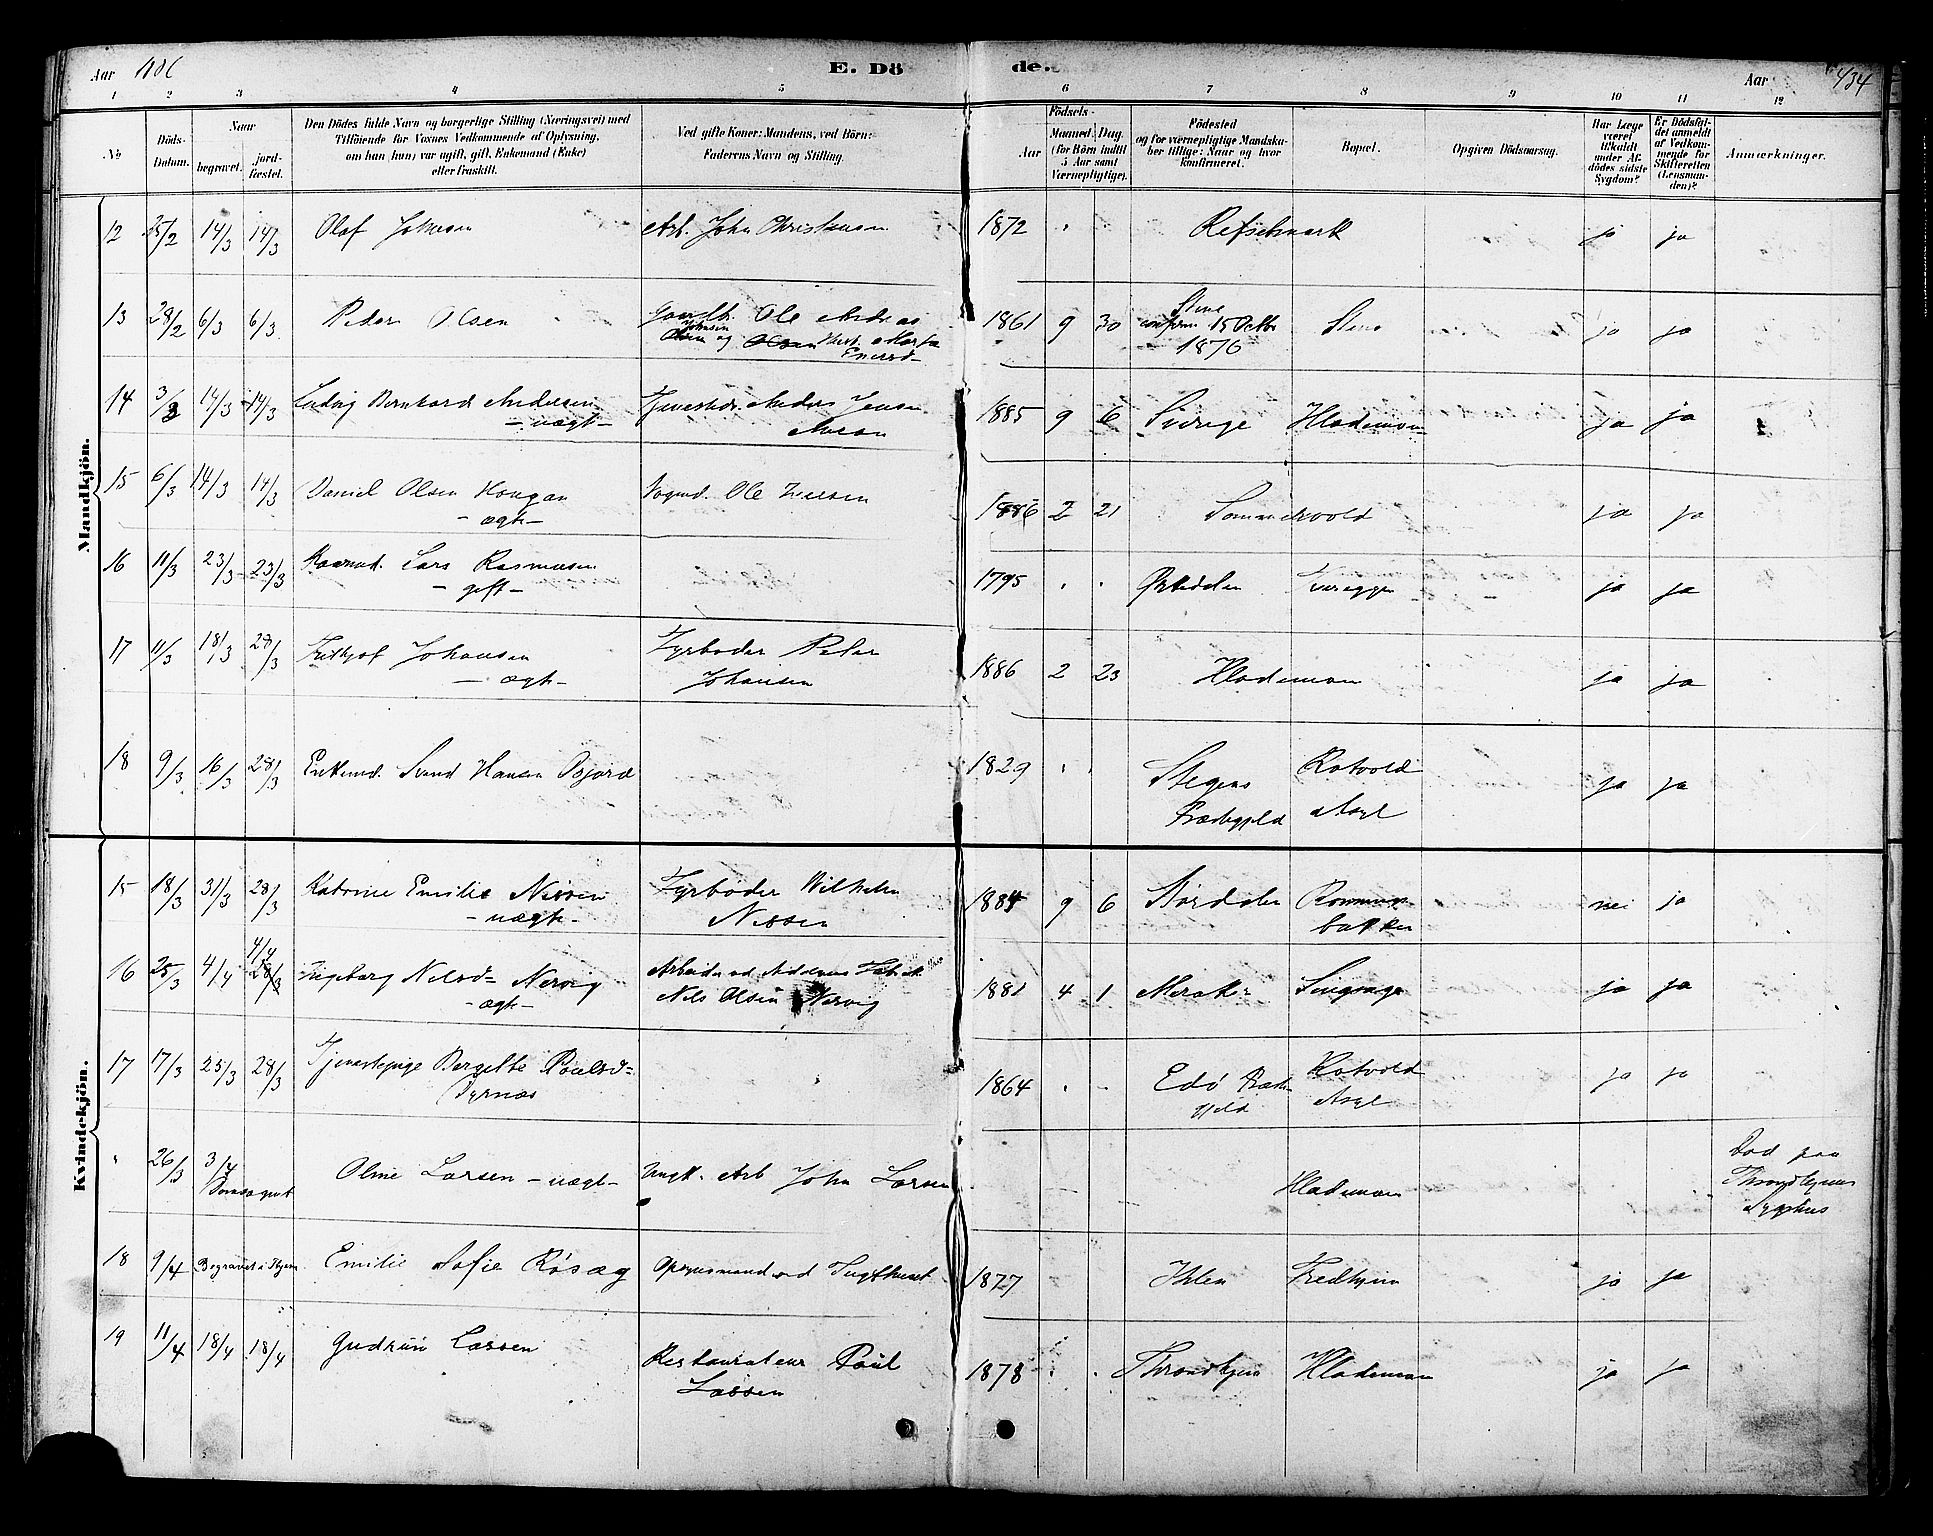 Aar 1886 E. Dö de. Aar 434
1 2 3 4 5 6 7 8 9 10 11 12
No
Döds-Datum.
Naar
begravet.
jord-fæstet.
Den Dödes fulde Navn og borgerlige Stilling (Næringsvei) med
Tilföiende for Voxnes Vedkommende af Oplysning,
om han (hun) var ugift, gift, Enkemand (Enke)
eller fraskilt.
Ved gifte Koner: Mandens, ved Börn:
Faderens Navn og Stilling.
Födsels-
Aar
Maaned. Dag.
(for Börn indtil
5 Aar samt
Værnepligtige).
Födested
og for værnepligtige Mandska-
ber tillige: Naar og hvor
konfirmeret.
Bopæl.
Opgiven Dödsaarsag.
Har Læge
været
tilkaldt
under Af-
dödes sidste
Sygdom?
Er Dödsfal-
det anmeldt
af Vedkom-
mende for
Skifteretten
(Lensman-
den)?
Anmærkninger.
Mandkjön.
12 25/2 14/3 14/3 Olaf Johnsen Arb. John Christensen 1872 Refsetmark ja ja
13 28/2 6/3 6/3 Peder Olsen Ole Andreas
Johnsen
Olsen og Olsen Marta
1861 9 30 Stene
confirm. 15 Octbr
1876
Stene ja ja
14 3/3 14/3 14/3 Ludvig Bernhard Andersen
- uægt -
Anders Jensen
1885 9 6 Sverige Hlademoen ja ja
15 6/3 14/3 14/3 Daniel Olsen Haugan
- ægt -
Ole Iversen 1886 2 21 ja ja
16 11/3 23/3 23/3 Lars Rasmusen
- gift -
1795 ja ja
17 11/3 18/3 28/3 Fritjof Johansen
- ægt -
Fyrböder Peter
Johansen
1886 2 23 Hlademoen ja ja
18 9/3 16/3 28/3 Enkemd. Svend Hansen
1829 Stegens
Præstegjeld
Rotvold
Asyl
ja ja
Kvindekjön.
15 18/3 31/3 28/3 Katrine Emilie Nissen
- uægt -
Fyrböder Wilhelm
Nissen
1884 9 6 Størdalen
bakken
nei ja
16 25/3 4/4 4/4
28/3
Ingeborg Nelsd= Nervig
- ægt -
Arbeider ved
Nils Olsen Nervig
1881 4 1 Meraker Singsager ja ja
17 17/3 25/3 28/3 Tjenestepige Bergitte Poulsd=
1864 Edö Præste-
gjeld
Rotvold
Asyl
ja ja
" 26/3 3/4
Domsognet
Oline Larsen - uægt - Ungk. Arb John Larsen
Hlademoen
Død paa
Throndhjems
Sygehus
18 9/4 Begravet i Hjem Emilie Sofie Rösæg Opsynsmand ved Tugthuset 1877 Ihlen ja ja
19 11/4 18/4 18/4 Gudrun Lassen
Restaurateur Poul
Lassen
1878 Throndhjem Hlademoen ja ja